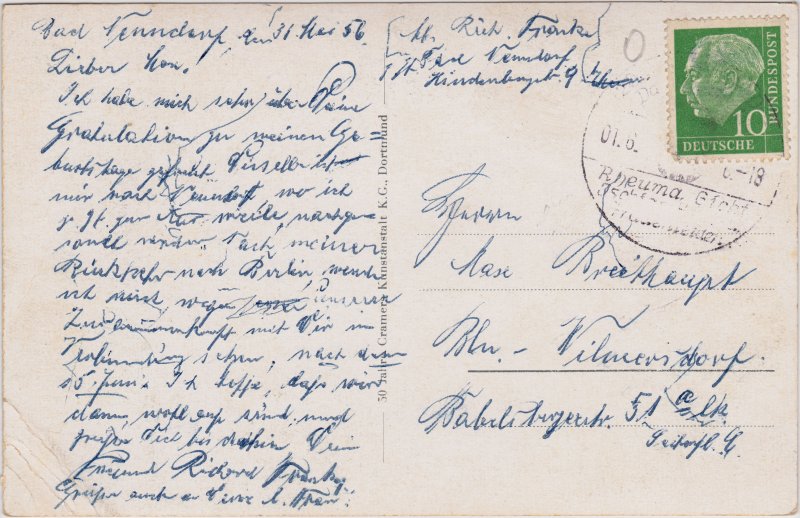 Bad Nenndorf den 31 Mai 56.
Lieber Max!
Ich habe mich sehr über Deine
Gratulation zu meinen Ge-
burtstage gefreut Dieselbe ist
mir nach Nenndorf, wo ich
z. Zt. zur Kur weile, nachge-
sandt worden. Nach meiner
Rückkehr nach Berlin, werde
ich mich wegen unserer
Zusammenkunft mit Dir in
Verbindung setzen, nach dem
15. Juni. Ich hoffe, daß wir
dann wohl auf sind, und
grüße Dich bis dahin Dein
Freund Richard Franke
Grüße auch an Deine l. Frau!
Abs. Rich. Franke
z. Zt. Bad Nenndorf
Hindenburgstr. 9
50 Jahre Cramers Kunstanstalt K.G., Dortmund
Herrn
Max Breithaupt
Bln. - Wilmersdorf.
Babelsbergerstr. 51 a
10
DEUTSCHE
BUNDESPOST
01.6.
-18
Rheuma, Gicht
Frauenleiden